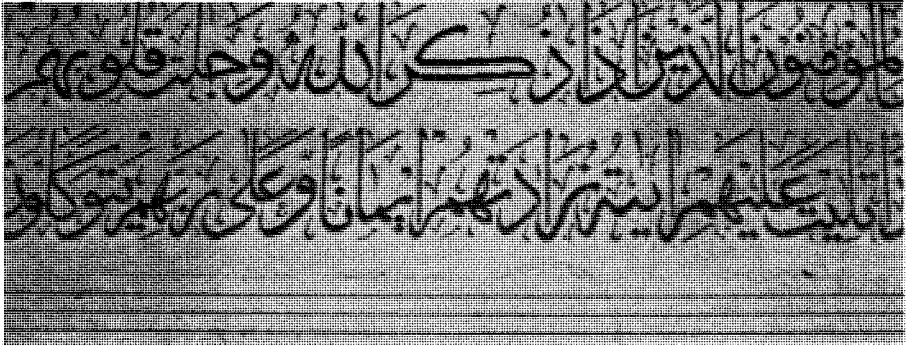 المؤمنون الذين إذا ذكر الله وجلت قلوبهم
تليت عليهم ايته زادتهم إيمانا وعلى ربهم يتوكلو